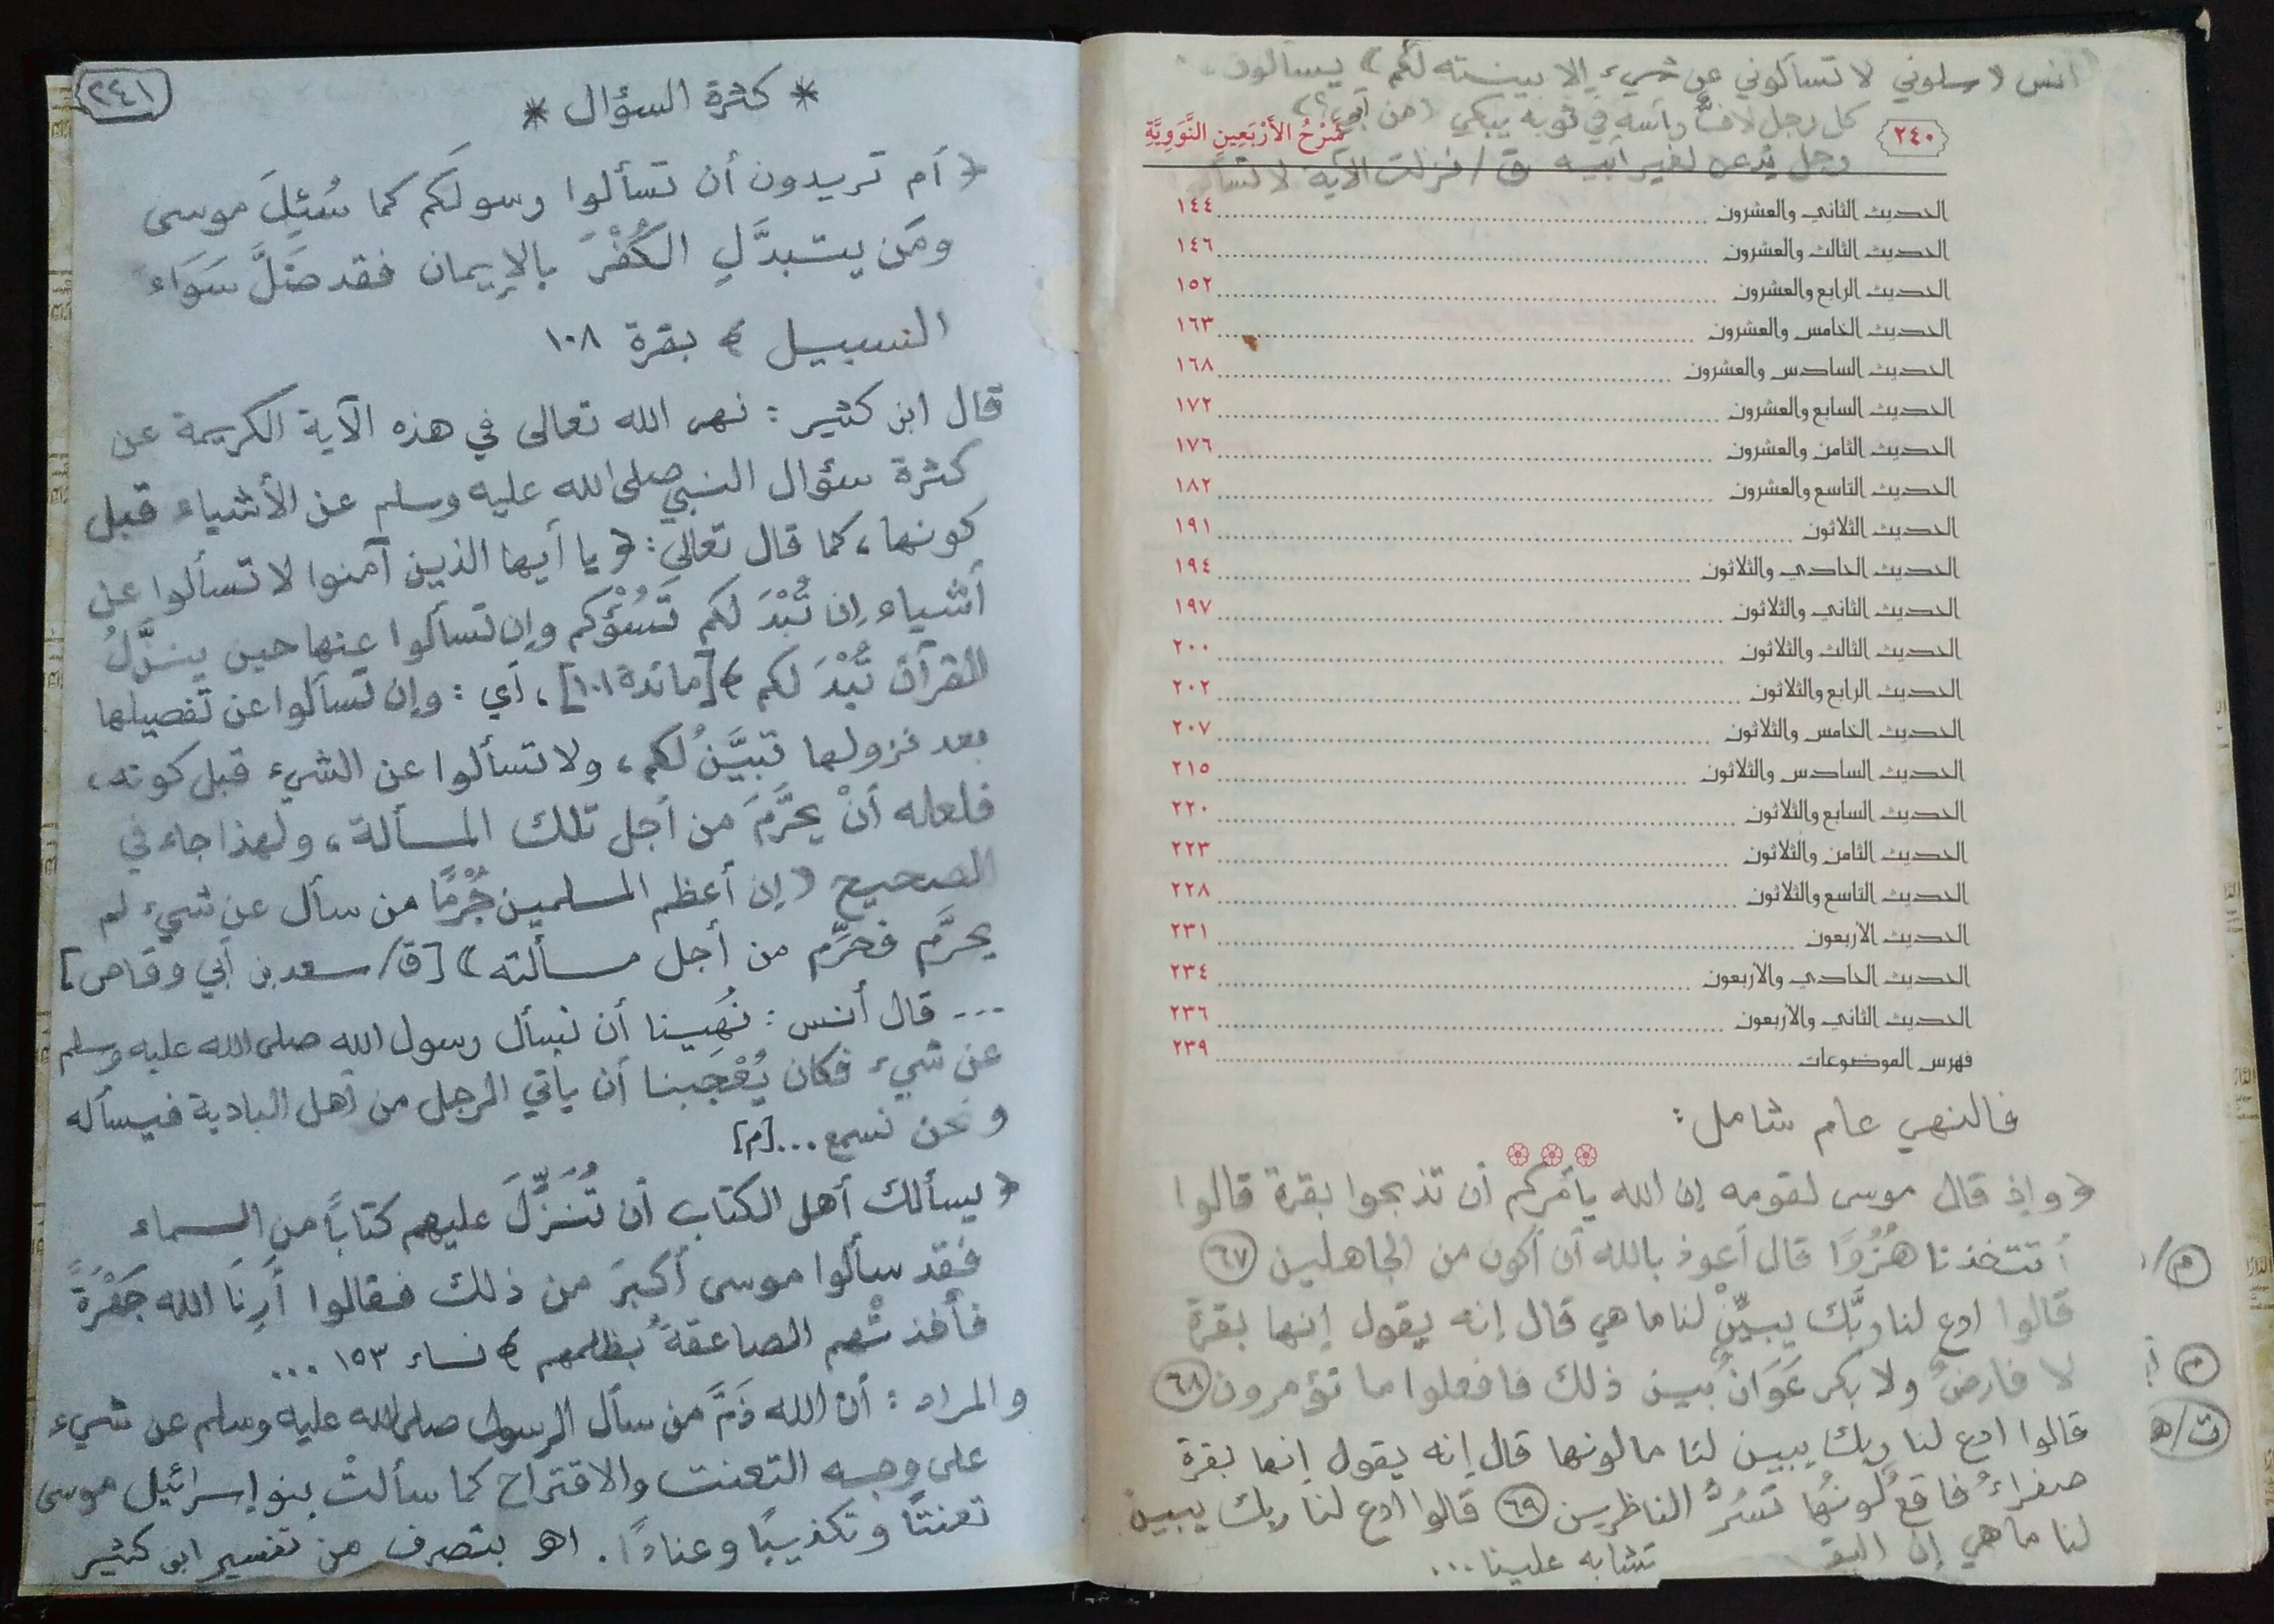 أنس (سلوني لا تسألوني عن شيء إلا بينته لكم) يسألون
كل رجل لافٌّ رأسه في ثوبه يبكي (من أبي؟)
٢٤٠
شَرْحُ الأَرْبَعِينِ النَّوَوِيَّةِ
رجل يُدعى لغير أبيه ق/ فنزلت الآية لا تسألوا
الحديث الثاني والعشرون ١٤٤
الحديث الثالث والعشرون ١٤٦
الحديث الرابع والعشرون ١٥٢
الحديث الخامس والعشرون ١٦٣
الحديث السادس والعشرون ١٦٨
الحديث السابع والعشرون ١٧٢
الحديث الثامن والعشرون ١٧٦
الحديث التاسع والعشرون ١٨٢
الحديث الثلاثون ١٩١
الحديث الحادي والثلاثون ١٩٤
الحديث الثاني والثلاثون ١٩٧
الحديث الثالث والثلاثون ٢٠٠
الحديث الرابع والثلاثون ٢٠٢
الحديث الخامس والثلاثون ٢٠٧
الحديث السادس والثلاثون ٢١٥
الحديث السابع والثلاثون ٢٢٠
الحديث الثامن والثلاثون ٢٢٣
الحديث التاسع والثلاثون ٢٢٨
الحديث الأربعون ٢٣١
الحديث الحادي والأربعون ٢٣٤
الحديث الثاني والأربعون ٢٣٦
فهرس الموضوعات ٢٣٩
فالنهي عام شامل:
﴿وإذ قال موسى لقومه إن الله يأمركم أن تذبحوا بقرة قالوا
أتتخذنا هُزُوًا قال أعوذ بالله أن أكون من الجاهلين ٦٧
قالوا ادع لنا ربَّك يبيِّنْ لنا ما هي قال إنه يقول إنها بقرة
لا فارضٌ ولا بكر عَوَانٌ بين ذلك فافعلوا ما تؤمرون ٦٨
قالوا ادع لنا ربك يبين لنا ما لونها قال إنه يقول إنها بقرة
صفراءُ فاقعٌ لونُها تَسُرُّ الناظرين ٦٩ قالوا ادع لنا ربك يبين
لنا ما هي إن البقر تشابه علينا...
٢٤١
* كثرة السؤال *
﴿أم تريدون أن تسألوا رسولَكم كما سُئِلَ موسى
ومَن يتبدَّلِ الكُفْرَ بالإيمان فقد ضَلَّ سَوَاءَ
السبيل﴾ بقرة ١٠٨
قال ابن كثير: نهى الله تعالى في هذه الآية الكريمة عن
كثرة سؤال النبي صلى الله عليه وسلم عن الأشياء قبل
كونها، كما قال تعالى: ﴿يا أيها الذين آمنوا لا تسألوا عن
أشياء إن تُبْدَ لكم تَسُؤْكم وإن تسألوا عنها حين ينزَّلُ
القرآن تُبْدَ لكم﴾ [مائدة ١٠١]، أي: وإن تسألوا عن تفصيلها
بعد نزولها تبيَّنُ لكم، ولا تسألوا عن الشيء قبل كونه،
فلعله أنْ يحَرَّمَ من أجل تلك المسألة، ولهذا جاء في
الصحيح (إن أعظم المسلمين جُرْمًا من سأل عن شيء لم
يحرَّم فحرِّم من أجل مسألته) [ق/ سعد بن أبي وقاص]
... قال أنس: نُهِينا أن نسأل رسول الله صلى الله عليه وسلم
عن شيء فكان يُعْجِبنا أن يأتي الرجل من أهل البادية فيسأله
ونحن نسمع... [م]
﴿يسألك أهل الكتاب أن تُنَزِّلَ عليهم كتاباً من السماء
فقد سألوا موسى أكبرَ من ذلك فقالوا أرِنَا الله جَهْرَةً
فأخذتْهم الصاعقةُ بظلمهم﴾ نساء ١٥٣ ...
والمراد: أن الله ذَمَّ من سأل الرسول صلى الله عليه وسلم عن شيء
على وجه التعنت والاقتراح كما سألتْ بنو إسرائيل موسى
تعنتًا وتكذيبًا وعنادًا. اهـ بتصرف من تفسير ابن كثير